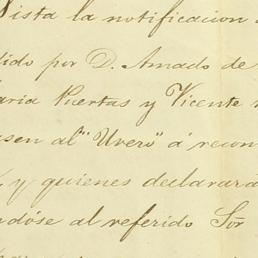 Vista la notificacion
dido por D. Amado de
aria Puertas y Vicente
asen al "Uvero" á recon
y quienes declarará
ndóse al referido Sór